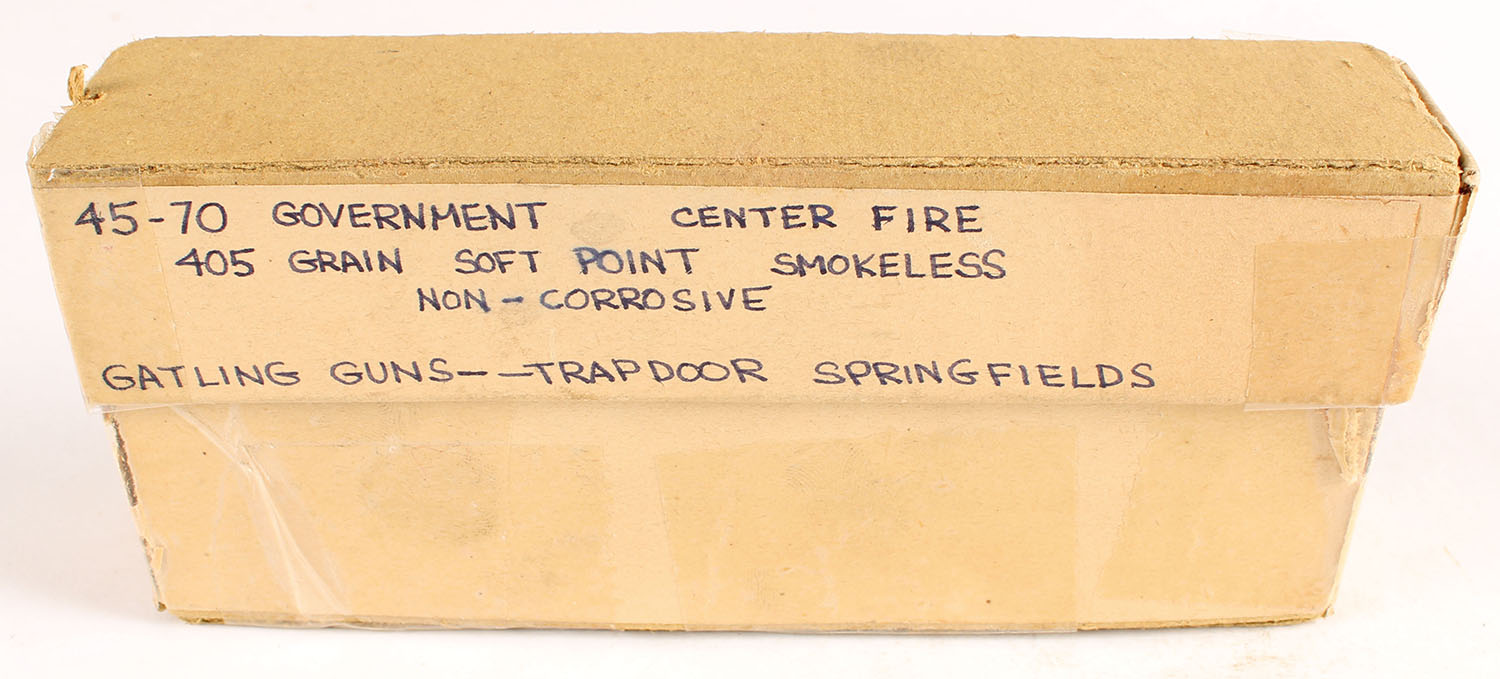 45-70 GOVERNMENT CENTER FIRE
405 GRAIN SOFT POINT SMOKELESS
NON-CORROSIVE
GATLING GUNS--TRAPDOOR SPRINGFIELDS